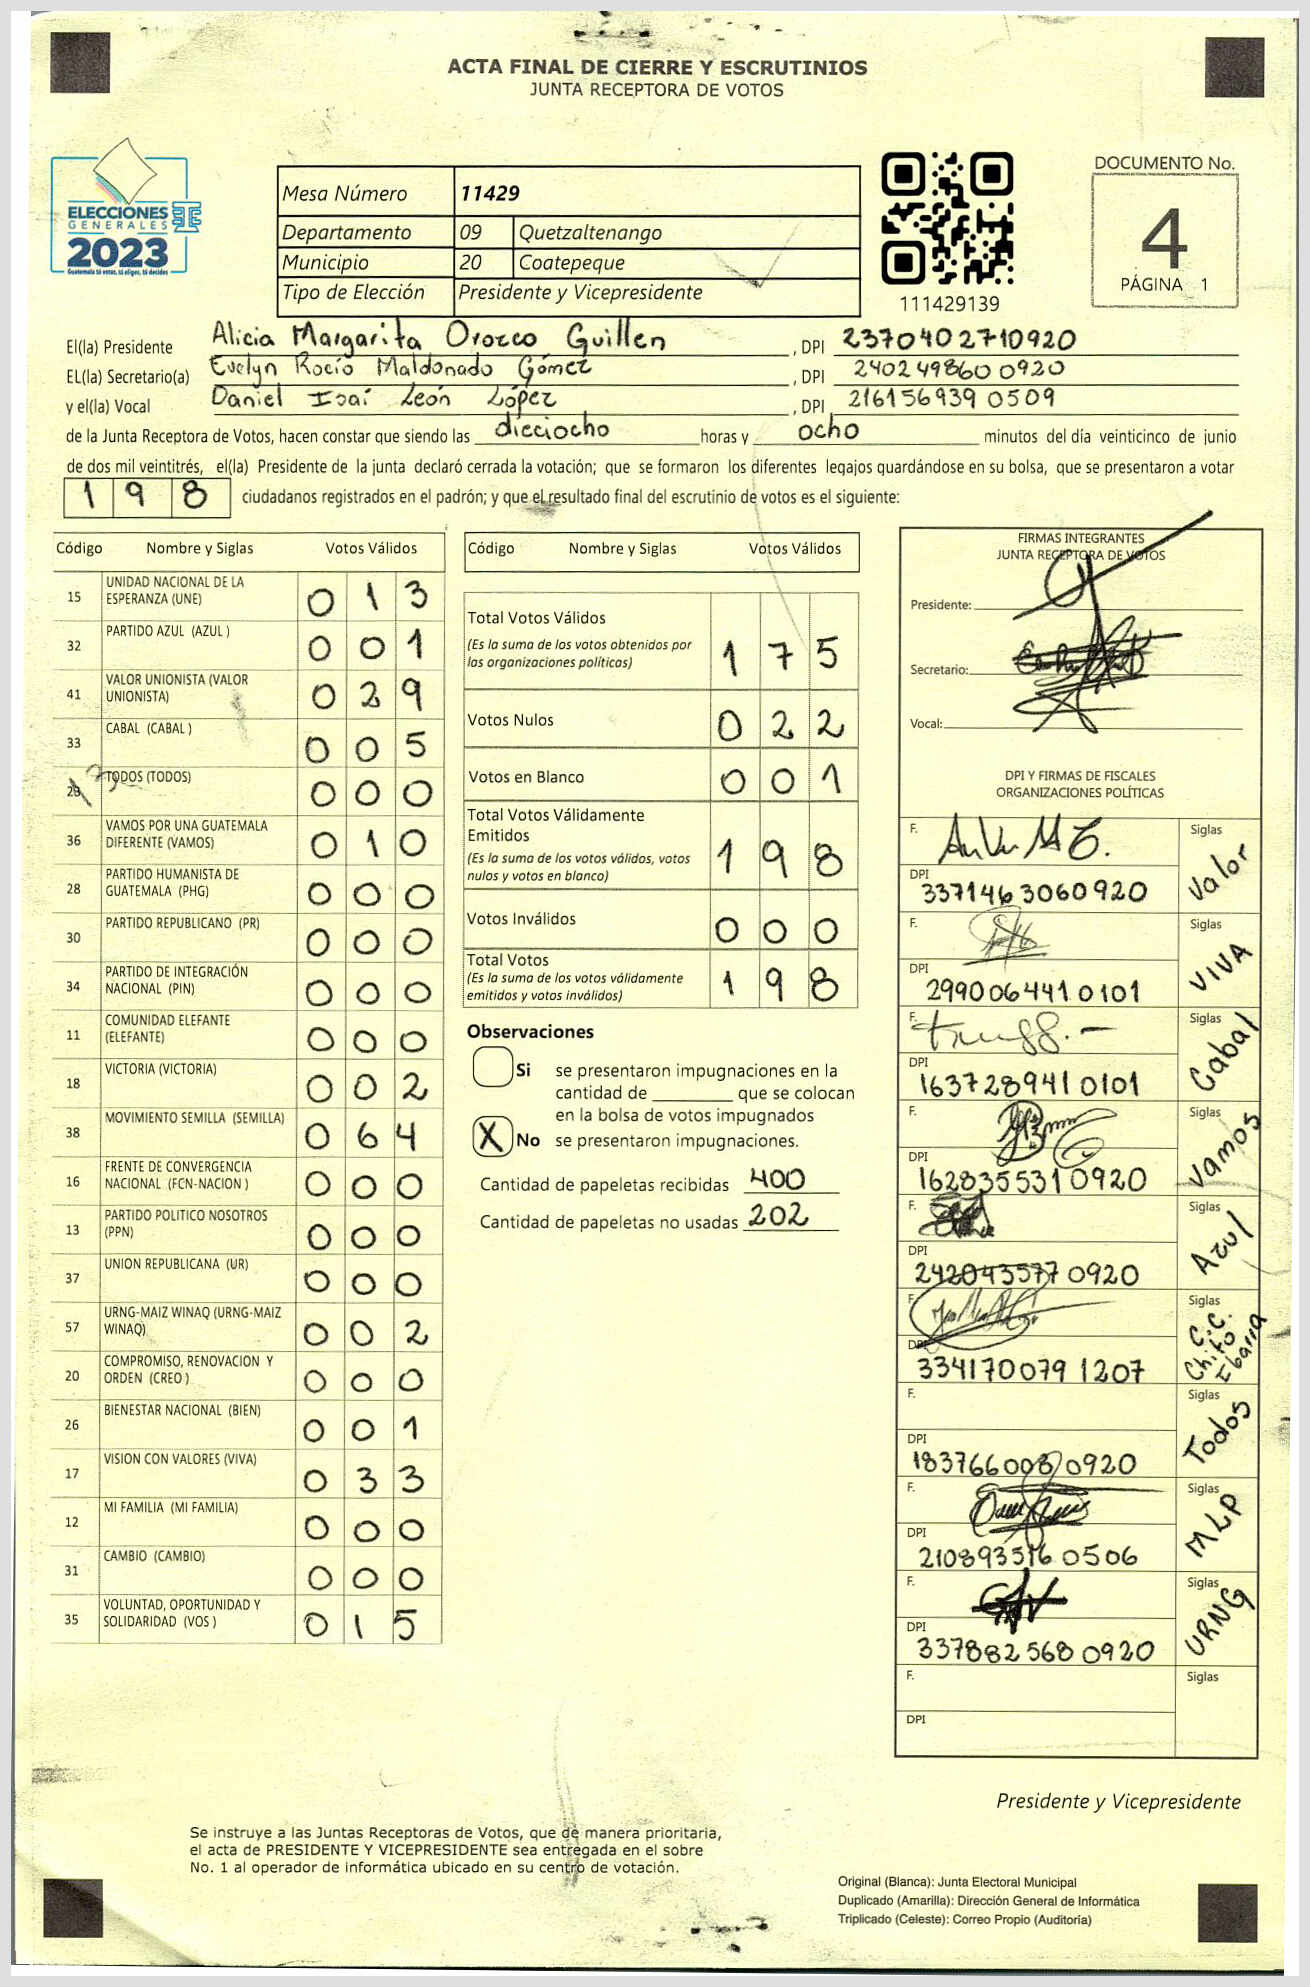 ACTA FINAL DE CIERRE Y ESCRUTINIOS
JUNTA RECEPTORA DE VOTOS
ELECCIONES
GENERALES
2023
Guatemala tú votas, tú eliges, tú decides
Mesa Número 11429
Departamento 09 Quetzaltenango
Municipio 20 Coatepeque
Tipo de Elección Presidente y Vicepresidente
111429139
DOCUMENTO No.
4
PÁGINA 1
El(la) Presidente Alicia Margarita Orozco Guillen , DPI 2370402710920
EL(la) Secretario(a) Evelyn Rocío Maldonado Gómez , DPI 2402498600920
y el(la) Vocal Daniel Isaí León López , DPI 2161569390509
de la Junta Receptora de Votos, hacen constar que siendo las dieciocho horas y ocho minutos del día veinticinco de junio
de dos mil veintitrés, el(la) Presidente de la junta declaró cerrada la votación; que se formaron los diferentes legajos guardándose en su bolsa, que se presentaron a votar
198 ciudadanos registrados en el padrón; y que el resultado final del escrutinio de votos es el siguiente:
Código Nombre y Siglas Votos Válidos
15 UNIDAD NACIONAL DE LA ESPERANZA (UNE) 013
32 PARTIDO AZUL (AZUL ) 001
41 VALOR UNIONISTA (VALOR UNIONISTA) 029
33 CABAL (CABAL ) 005
23 TODOS (TODOS) 000
36 VAMOS POR UNA GUATEMALA DIFERENTE (VAMOS) 010
28 PARTIDO HUMANISTA DE GUATEMALA (PHG) 000
30 PARTIDO REPUBLICANO (PR) 000
34 PARTIDO DE INTEGRACIÓN NACIONAL (PIN) 000
11 COMUNIDAD ELEFANTE (ELEFANTE) 000
18 VICTORIA (VICTORIA) 002
38 MOVIMIENTO SEMILLA (SEMILLA) 064
16 FRENTE DE CONVERGENCIA NACIONAL (FCN-NACION ) 000
13 PARTIDO POLITICO NOSOTROS (PPN) 000
37 UNION REPUBLICANA (UR) 000
57 URNG-MAIZ WINAQ (URNG-MAIZ WINAQ) 002
20 COMPROMISO, RENOVACION Y ORDEN (CREO ) 000
26 BIENESTAR NACIONAL (BIEN) 001
17 VISION CON VALORES (VIVA) 033
12 MI FAMILIA (MI FAMILIA) 000
31 CAMBIO (CAMBIO) 000
35 VOLUNTAD, OPORTUNIDAD Y SOLIDARIDAD (VOS ) 015
Código Nombre y Siglas Votos Válidos
Total Votos Válidos 175
(Es la suma de los votos obtenidos por
las organizaciones políticas)
Votos Nulos 022
Votos en Blanco 001
Total Votos Válidamente
Emitidos 198
(Es la suma de los votos válidos, votos
nulos y votos en blanco)
Votos Inválidos 000
Total Votos 198
(Es la suma de los votos válidamente
emitidos y votos inválidos)
Observaciones
Si se presentaron impugnaciones en la
cantidad de ________ que se colocan
en la bolsa de votos impugnados
X No se presentaron impugnaciones.
Cantidad de papeletas recibidas 400
Cantidad de papeletas no usadas 202
FIRMAS INTEGRANTES
JUNTA RECEPTORA DE VOTOS
Presidente:
Secretario:
Vocal:
DPI Y FIRMAS DE FISCALES
ORGANIZACIONES POLÍTICAS
F. Siglas Valor
DPI 3371463060920
F. Siglas VIVA
DPI 2990064410101
F. Siglas Cabal
DPI 1637289410101
F. Siglas Vamos
DPI 1628355310920
F. Siglas Azul
DPI 2420435770920
F. Siglas C.C. Chito Ebarra
DPI 3341700791207
F. Siglas Todos
DPI 1837660080920
F. Siglas MLP
DPI 2108935160506
F. Siglas URNG
DPI 3378825680920
F. Siglas
DPI
Presidente y Vicepresidente
Se instruye a las Juntas Receptoras de Votos, que de manera prioritaria,
el acta de PRESIDENTE Y VICEPRESIDENTE sea entregada en el sobre
No. 1 al operador de informática ubicado en su centro de votación.
Original (Blanca): Junta Electoral Municipal
Duplicado (Amarilla): Dirección General de Informática
Triplicado (Celeste): Correo Propio (Auditoría)